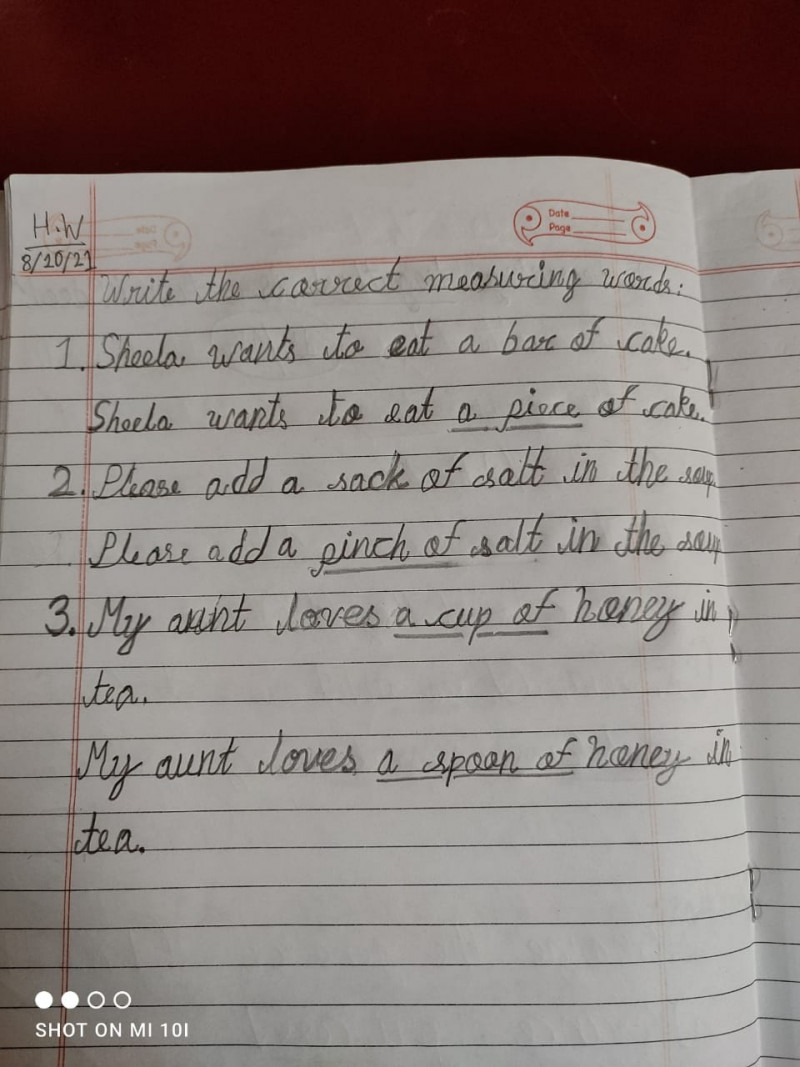 H.W
8/10/21
Date
Page
Write the correct measuring words:
1. Sheela wants to eat a bar of cake.
Sheela wants to eat a piece of cake.
2. Please add a sack of salt in the soup
Please add a pinch of salt in the soup
3. My aunt loves a cup of honey in
tea.
My aunt loves a spoon of honey in
tea.
SHOT ON MI 10I